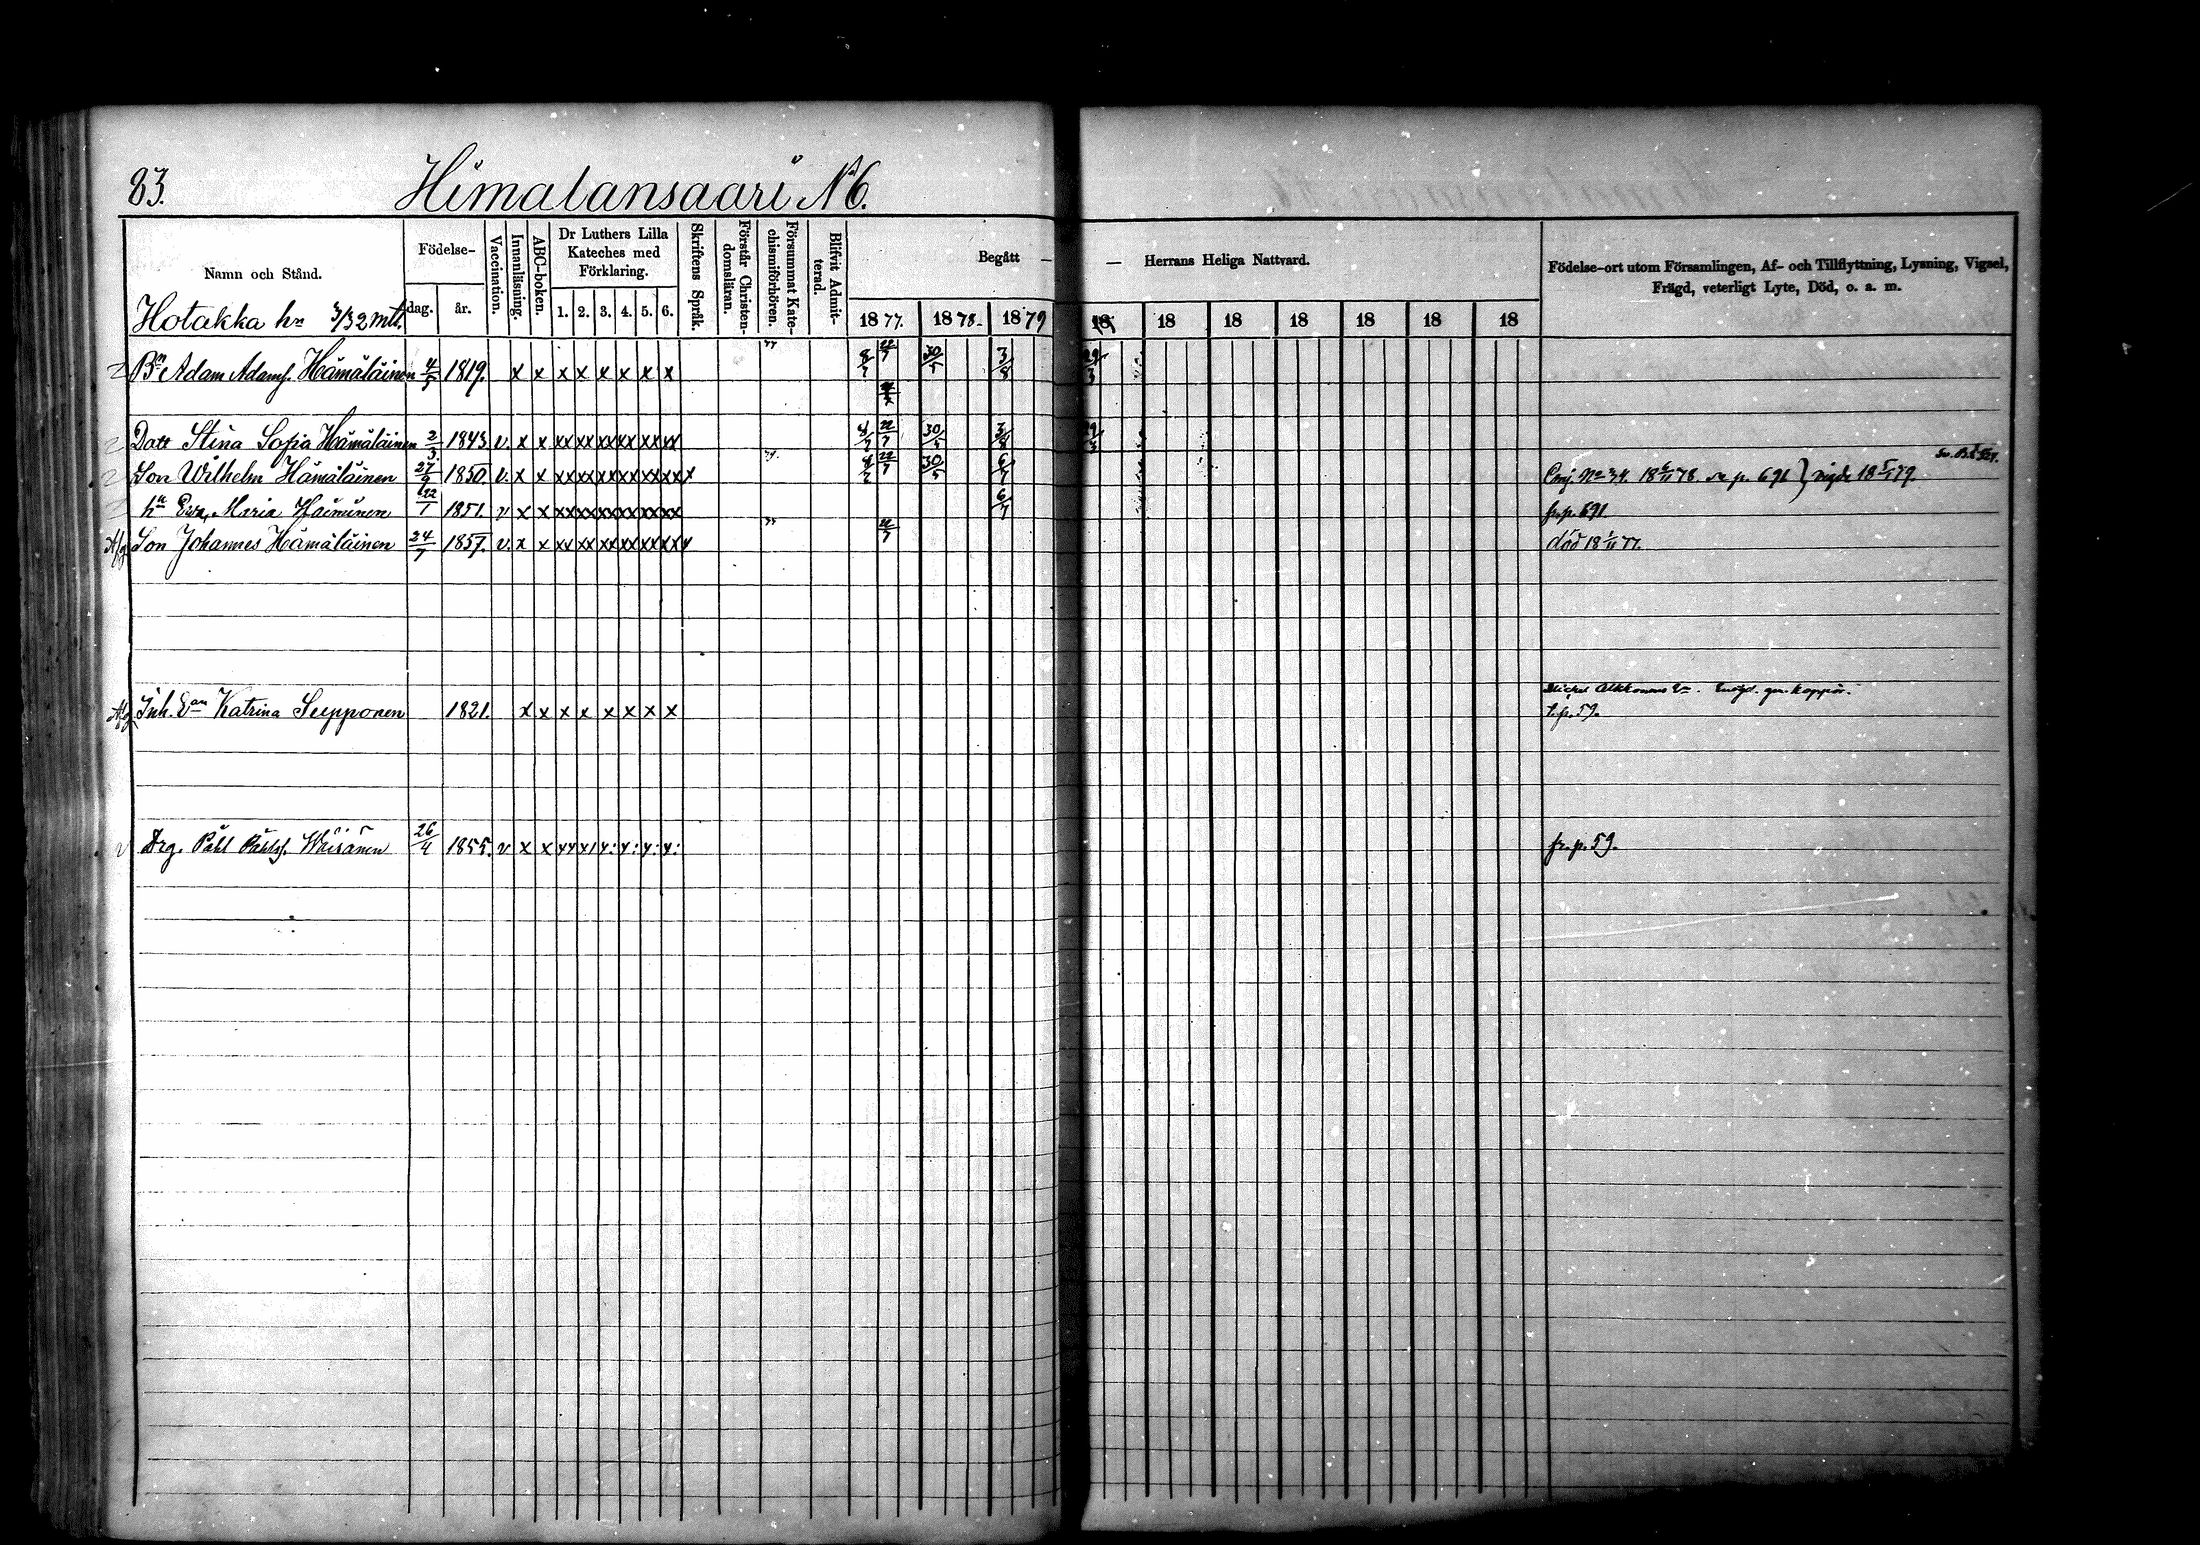 83.
Himalansaari № 6.
Namn och Stånd.
Födelse-
dag.
år.
Vaccination.
Innanläsning.
ABC-boken.
Dr Luthers Lilla
Kateches med
Förklaring.
1. 2. 3. 4. 5. 6.
Skriftens Språk.
Förstår Christen-
domsläran.
Försummat Kate-
chismiförhören.
Blifvit Admit-
terad.
Begått — — Herrans Heliga Nattvard.
1877. 1878. 1879 18 18 18 18 18 18 18
Födelse-ort utom Församlingen, Af- och Tillflyttning, Lysning, Vigsel,
Frägd, veterligt Lyte, Död, o. a. m.
Hotakka hn 3/32 mtl.
Bn Adam Adamsf. Hämäläinen 4/5 1819. x x x x x x x x 8/7 22/7 30/5 3/8 29/3
Dott Stina Sofia Hämäläinen 2/3 1843. v. x x xx xx xx xx xx xx 8/7 22/7 30/5 3/8 29/3
Son Wilhelm Hämäläinen 27/9 1850. v. x x xx xx xx xx xx xx x 8/7 22/7 30/5 6/7 Conj. No 34. 18 78. se p. 691 } vigde 18 79.
hu Eva Maria Häiminen 22/1 1851. v x x xx xx xx xx xx xx 6/7 fr. p. 691.
Afg Son Johannes Hämäläinen 24/7 1857. v. x x xx xx xx xx xx xx 22/7 död 18 77.
Afg Inh. Katrina Seepponen 1821. x x x x x x x x
t. p. 59.
Drg. Påhl Påhlsf. Wäisänen 26/4 1855. v x x fr. p. 59.